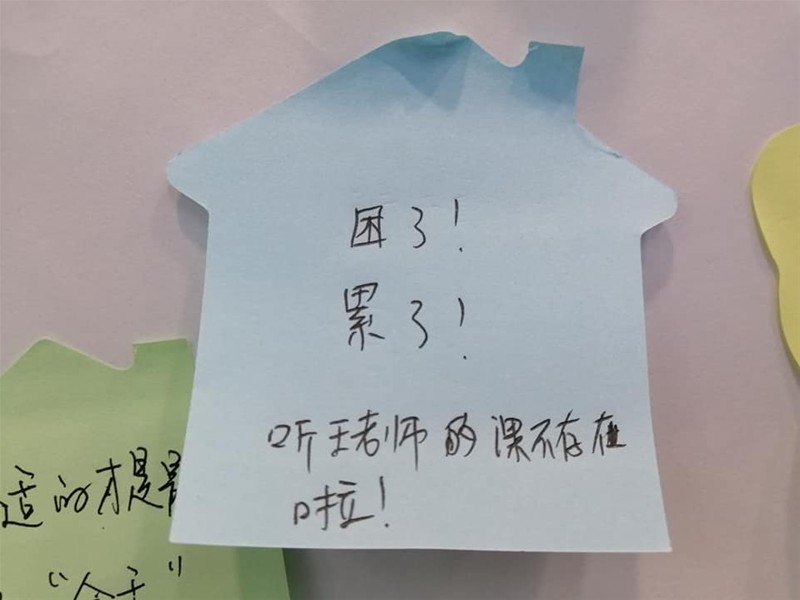 困了!
累了!
听王老师的课不存在
啦!
适的才是
"合于"